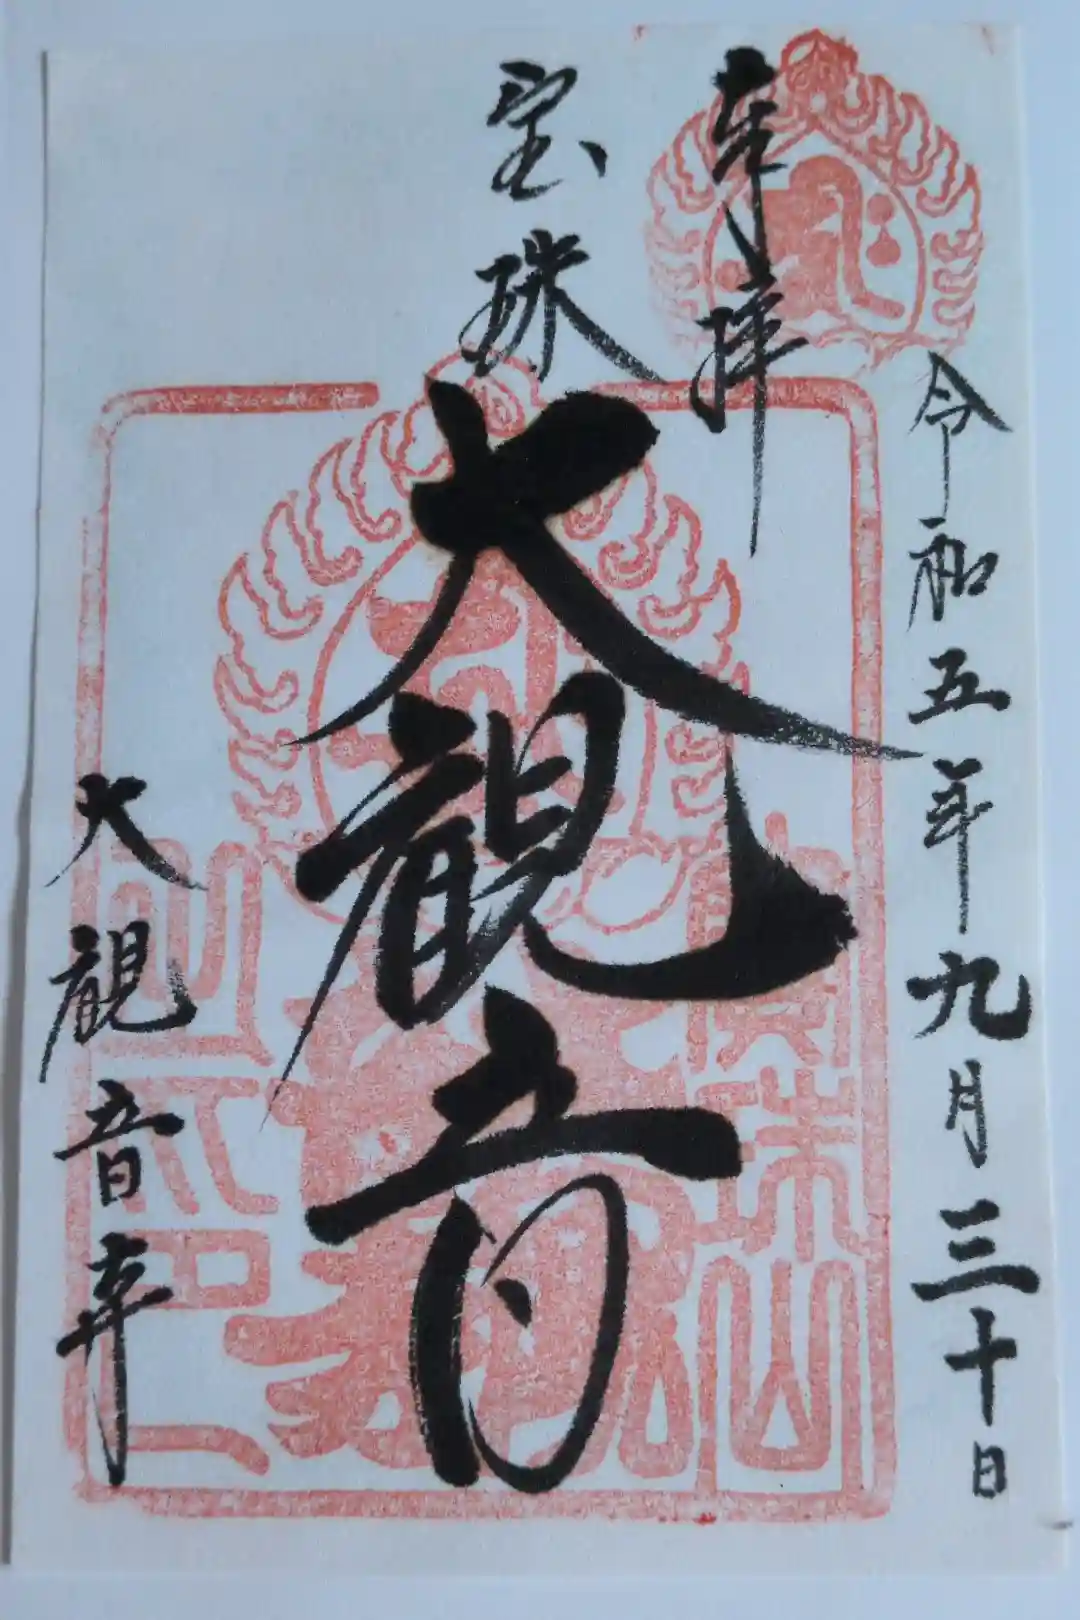 令和五年九月三十日
奉拝
宝珠
大観音
大観音寺